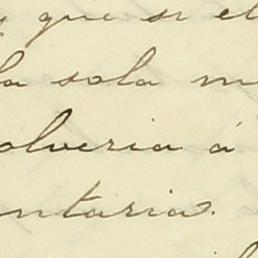 y que si el
la sola m
olveria á
ntaria.